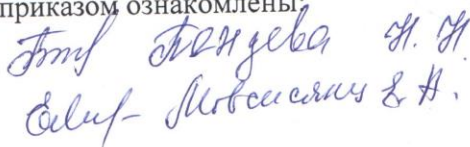 приказом ознакомлены:
Пандева Н. Н
Мовсисянц Е. А.